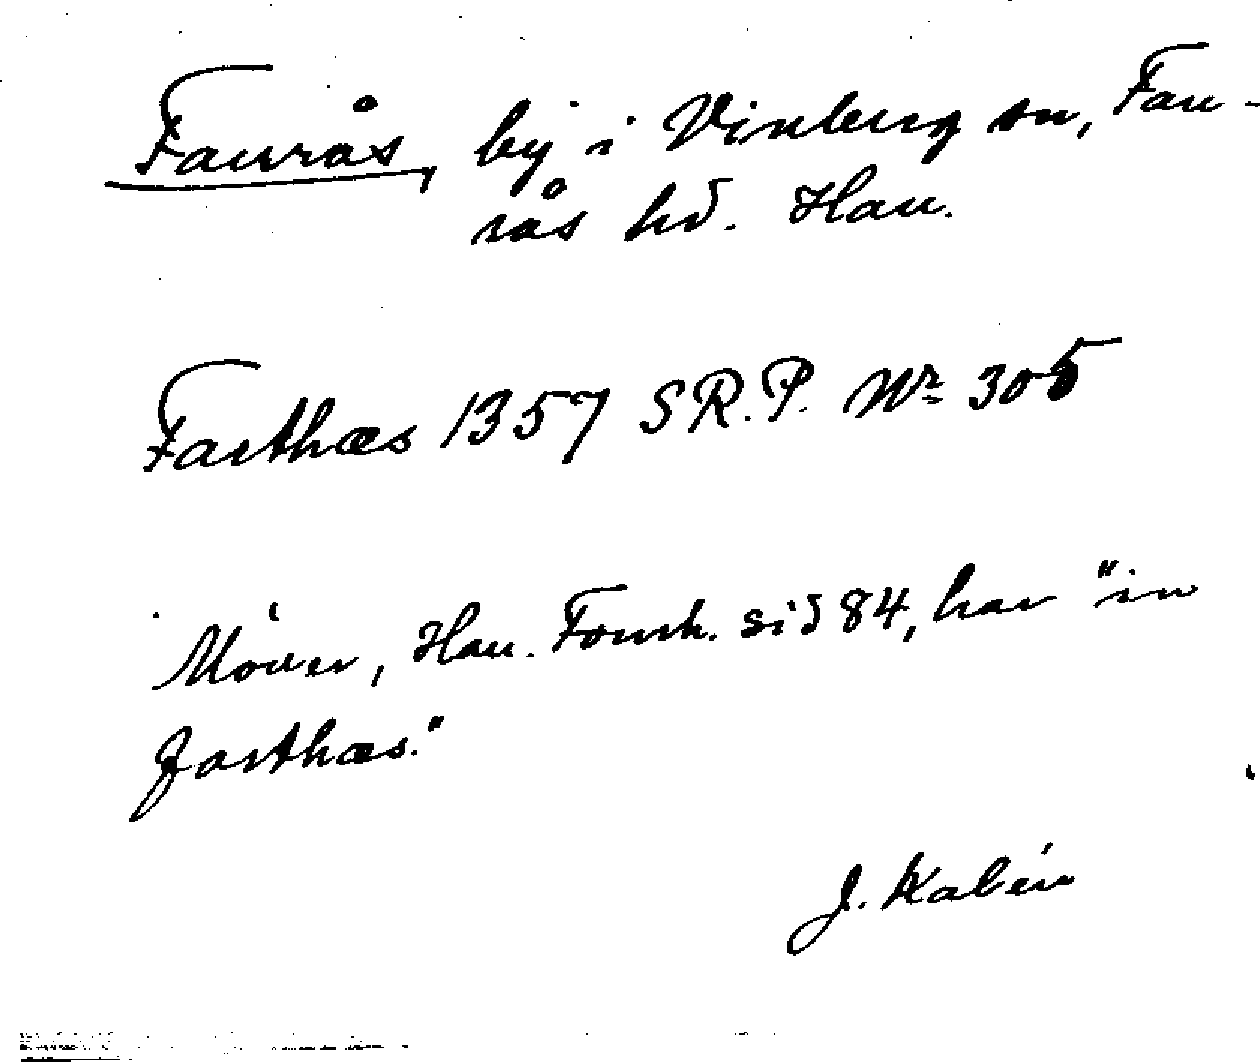 Faurås, by i Vinberg sn, Fau-
rås hd. Hall.
Farthæs 1357 S R.P. Nr 305
Möller, Hall. Fornh. sid 84, har "in
farthæs."
J. Kalén